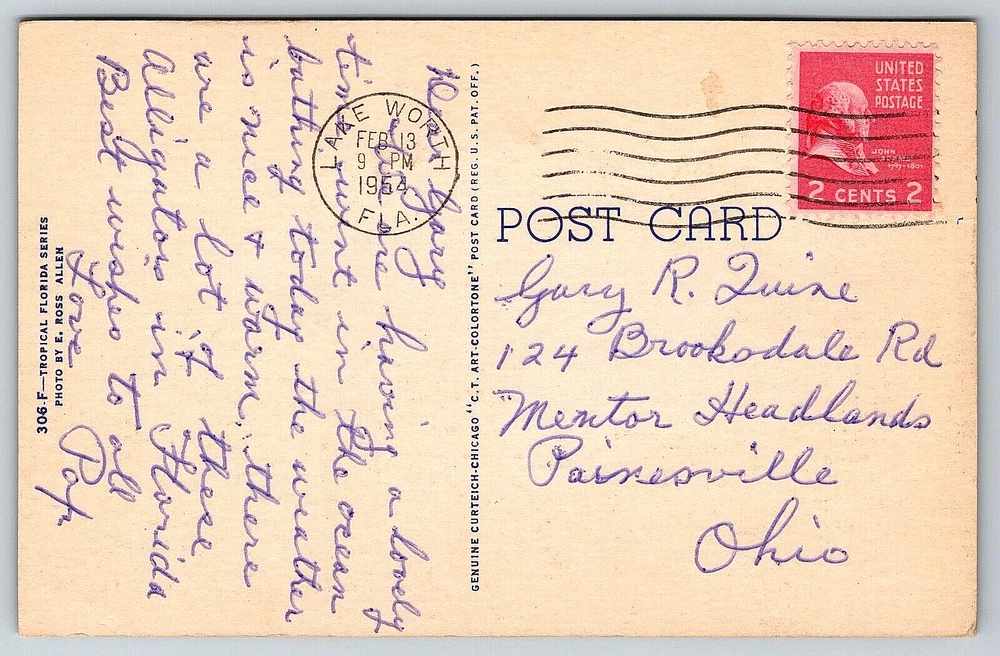 Dear Gary
We are having a lovely
time went in the ocean
bathing today the weather
is nice & warm, there
are a lot of these
Alligators in Florida
Best wishes to all
Love
Pop
LAKE WORTH
FEB 13
9 PM
1954
FLA.
306-F—TROPICAL FLORIDA SERIES
PHOTO BY E. ROSS ALLEN
GENUINE CURTEICH-CHICAGO "C.T. ART-COLORTONE" POST CARD (REG. U.S. PAT. OFF.)
UNITED
STATES
POSTAGE
JOHN
1797-1801
2 CENTS 2
POST CARD
Gary R. Quine
124 Brooksdale Rd
Mentor Headlands
Painesville
Ohio